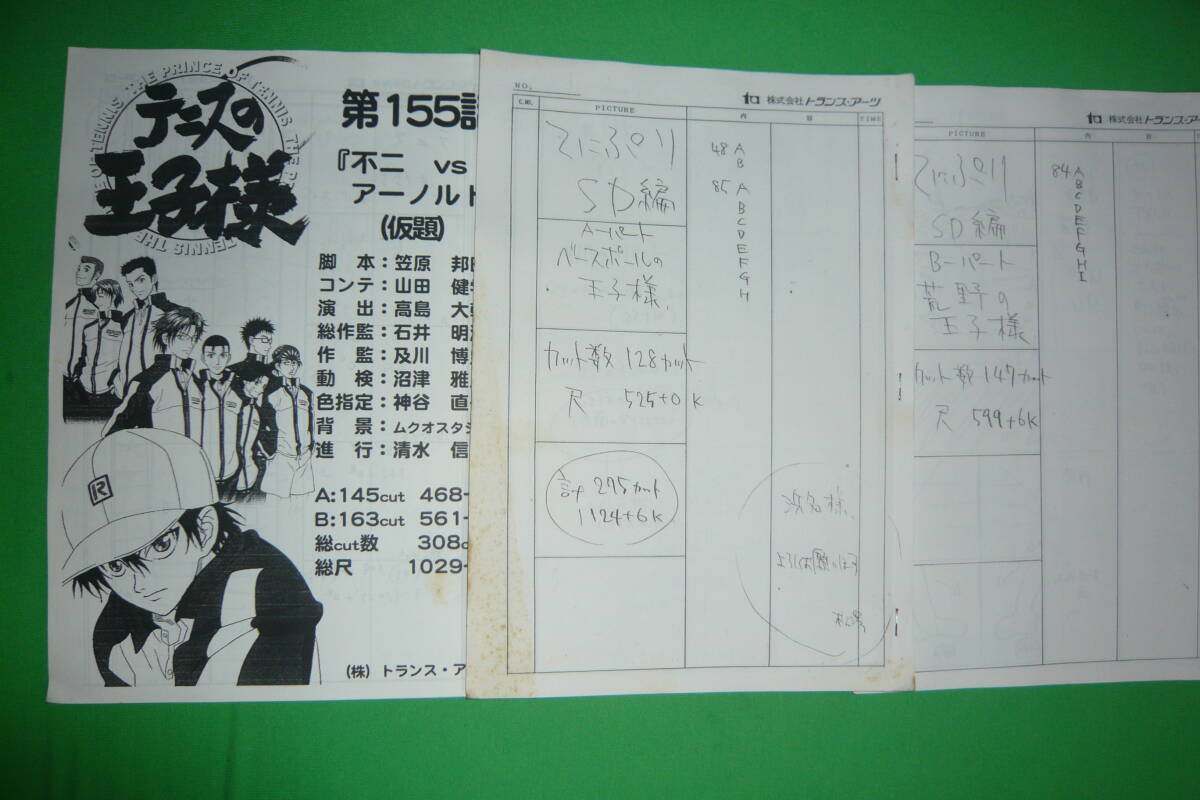 THE PRINCE OF TENNIS
テニスの
王子様
第155話
『不二 vs
アーノルド
(仮題)
脚 本：笠原 邦
コンテ：山田 健
演 出：高島 大
総作監：石井 明
作 監：及川 博
動 検：沼津 雅
色指定：神谷 直
背 景：ムクオスタジ
進 行：清水 信
A:145cut 468-
B:163cut 561-
総cut数 308c
総尺 1029-
(株) トランス・ア
NO.
株式会社 トランス・アーツ
C.NO. PICTURE 内 容 TIME
てにぷり
SD編
A-パート
ベースボールの
王子様
カット数 128カット
尺 525+0K
計 275カット
1124+6K
48 A
B
85 A
B
C
D
E
F
G
H
浜名様、
よろしくお願いします
株式会社 トランス・アーツ
PICTURE 内 容
てにぷり
SD編
B-パート
荒野の
王子様
カット数 147カット
尺 599+6K
84 A
B
C
D
E
F
G
H
I